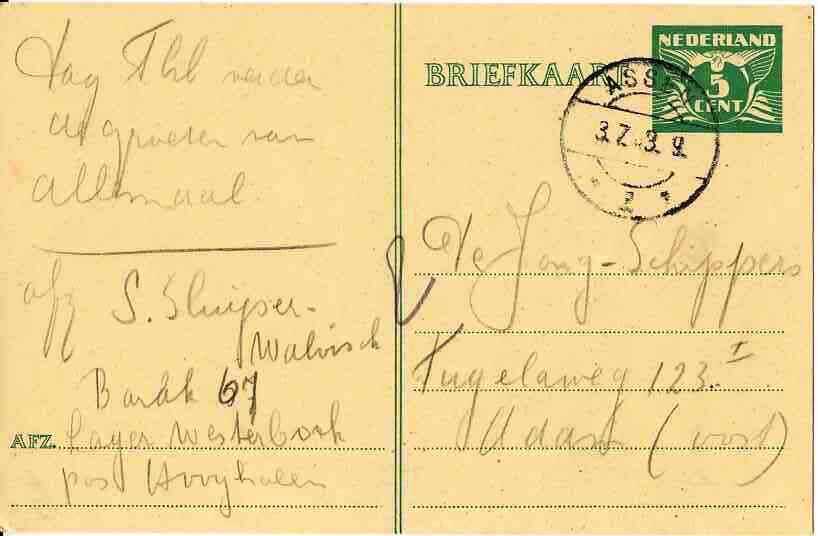 dag
de groeten van
Allemaal.
afz S. Sluijser-
Walvisch
Barak 67
AFZ. Lager Westerbork
post Hooghalen
BRIEFKAART
NEDERLAND
5
CENT
ASSEN
De Jong-Schippers
Tugelaweg 123 I
Adam (oost)